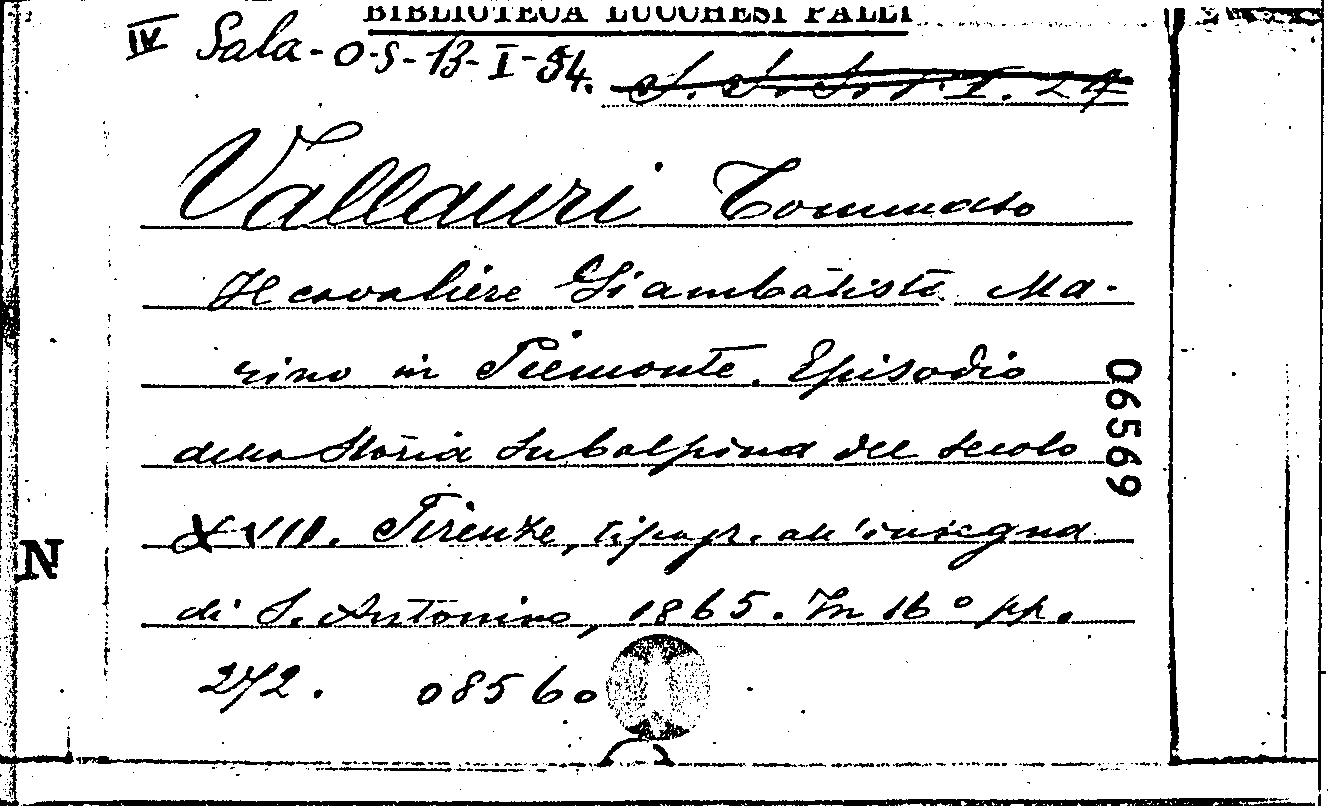 BIBLIOTECA LUCCHESI PALLI
IV Sala - O-S-13-I-34.
Vallauri Tommaso
Il cavaliere Giambatista Ma-
rino in Piemonte. Episodio
della Storia Subalpina del secolo
XVII. Firenze, tipogr. all'insegna
di S. Antonino, 1865. In 16° pp.
272. 08560
06569
N